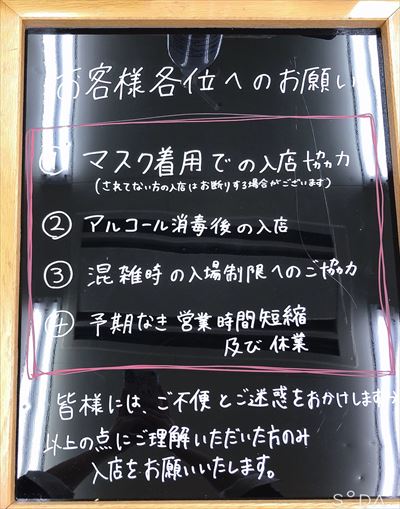 お客様各位へのお願い
① マスク着用での入店協力
(されてない方の入店はお断りする場合がございます)
② アルコール消毒後の入店
③ 混雑時の入場制限へのご協力
④ 予期なき営業時間短縮
及び休業
皆様には、ご不便とご迷惑をおかけしますが
以上の点にご理解いただいた方のみ
入店をお願いいたします。
SODA